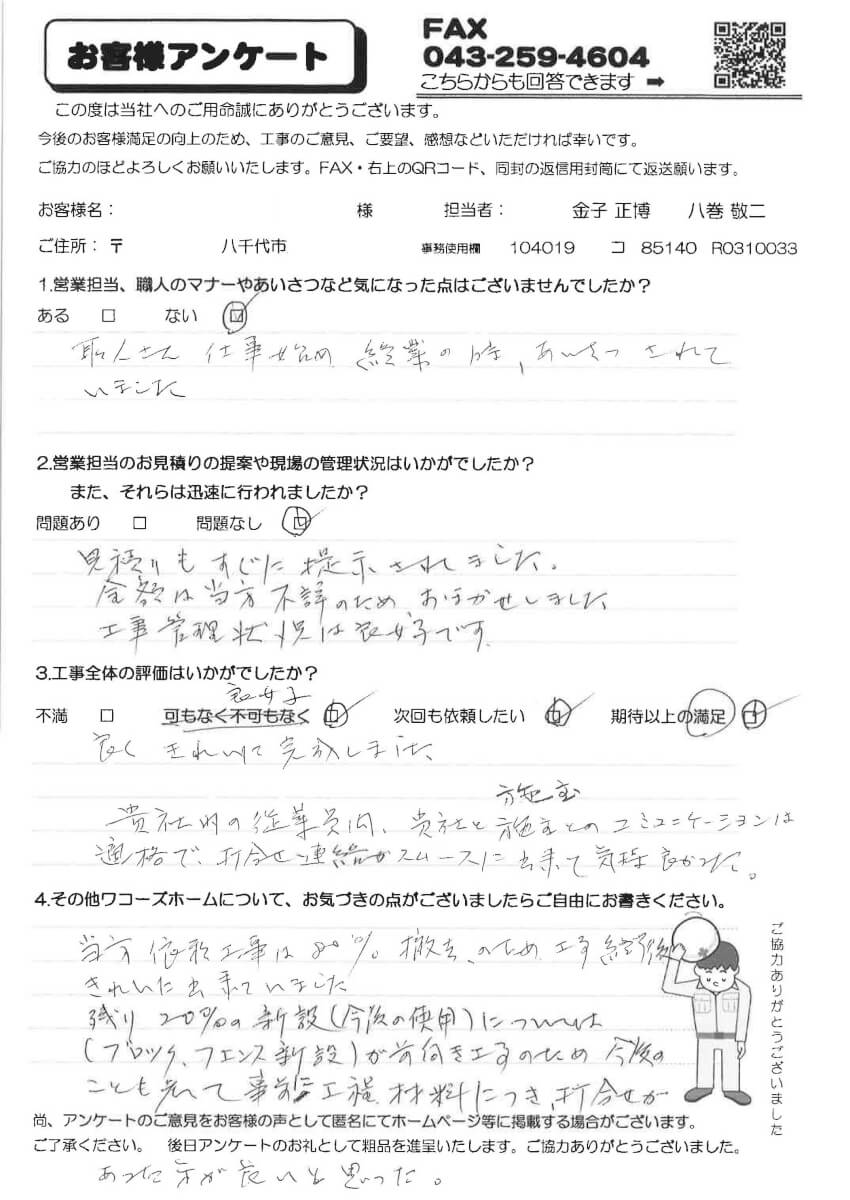 お客様アンケート
FAX
043-259-4604
こちらからも回答できます ➡
この度は当社へのご用命誠にありがとうございます。
今後のお客様満足の向上のため、工事のご意見、ご要望、感想などいただければ幸いです。
ご協力のほどよろしくお願いいたします。FAX・右上のQRコード、同封の返信用封筒にて返送願います。
お客様名： 様 担当者： 金子 正博 八巻 敬二
ご住所：〒 八千代市 事務使用欄 104019 コ 85140 R0310033
1.営業担当、職人のマナーやあいさつなど気になった点はございませんでしたか？
ある □ ない ☑
職人さん 仕事始め 終業の時、あいさつ されて
いました
2.営業担当のお見積りの提案や現場の管理状況はいかがでしたか？
また、それらは迅速に行われましたか？
問題あり □ 問題なし ☑
見積りも すぐに 提示 されました。
金額は当方不詳のため おまかせしました
工事管理状況は良好です
3.工事全体の評価はいかがでしたか？
良好
不満 □ 可もなく不可もなく ☑ 次回も依頼したい ☑ 期待以上の満足 ☑
良く きれいに 完成しました
施主
貴社内の従業員間、貴社と施主とのコミュニケーションは
適格で、打合せ連絡がスムースに出来て気持良かった。
4.その他ワコーズホームについて、お気づきの点がございましたらご自由にお書きください。
当方 依頼工事は80%。撤去、のため 工事
きれいに出来ていました
残り 20%の新設(今後の使用)については
(ブロック、フェンス新設)が前向き工事のため 今後の
ことも考えて 事前に工程 材料につき、打合せが
ご協力ありがとうございました
尚、アンケートのご意見をお客様の声として匿名にてホームページ等に掲載する場合がございます。
ご了承ください。 後日アンケートのお礼として粗品を進呈いたします。ご協力ありがとうございました。
あった方が良いと思った。